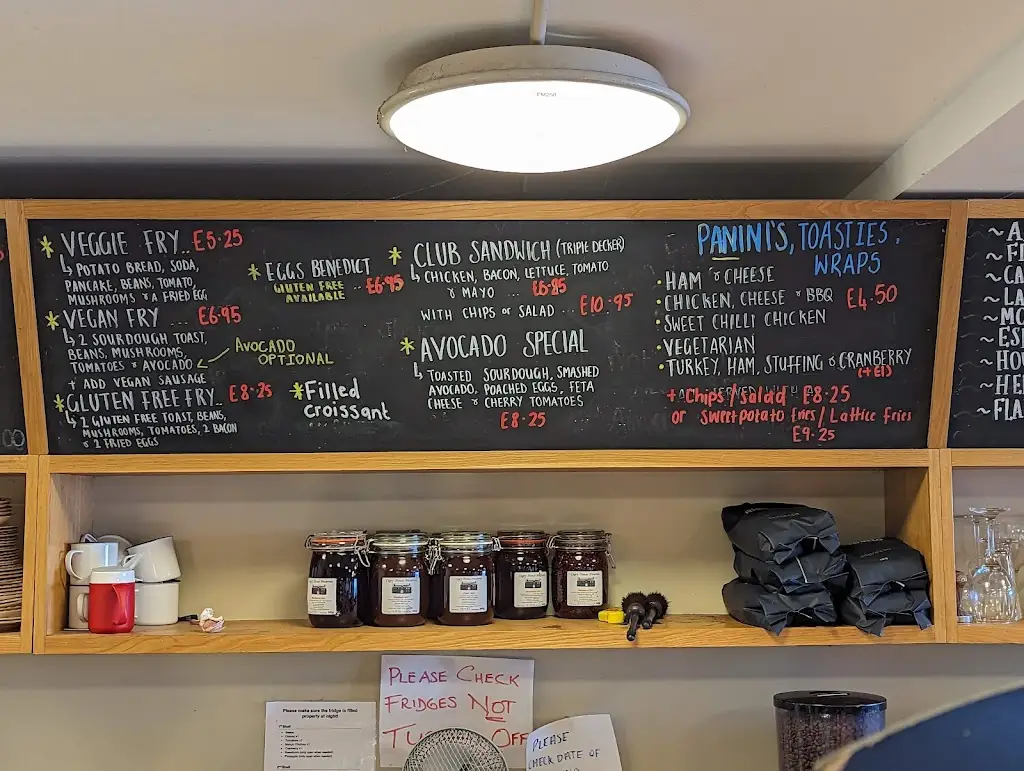 VEGGIE FRY.. £5·25
POTATO BREAD, SODA,
PANCAKE, BEANS, TOMATO,
MUSHROOMS & A FRIED EGG
VEGAN FRY ... £6·95
2 SOURDOUGH TOAST,
BEANS, MUSHROOMS,
TOMATOES & AVOCADO
AVOCADO
OPTIONAL
+ ADD VEGAN SAUSAGE
GLUTEN FREE FRY.. £8·25
2 GLUTEN FREE TOAST, BEANS,
MUSHROOMS, TOMATOES, 2 BACON
& 2 FRIED EGGS
EGGS BENEDICT
GLUTEN FREE
AVAILABLE
... £6·95
Filled
croissant
CLUB SANDWICH (TRIPLE DECKER)
CHICKEN, BACON, LETTUCE, TOMATO
& MAYO ... £6·85
WITH CHIPS or SALAD ... £10·95
AVOCADO SPECIAL
TOASTED SOURDOUGH, SMASHED
AVOCADO, POACHED EGGS, FETA
CHEESE & CHERRY TOMATOES
£8·25
PANINI'S, TOASTIES,
WRAPS
HAM & CHEESE
CHICKEN, CHEESE & BBQ £4·50
SWEET CHILLI CHICKEN
VEGETARIAN
TURKEY, HAM, STUFFING & CRANBERRY
(+£1)
+ Chips/salad £8·25
or sweetpotato fries/Lattice fries
£9·25
Please make sure the fridge is filled
properly at night!
PLEASE CHECK
FRIDGES NOT
OFF
PLEASE
CHECK DATE OF